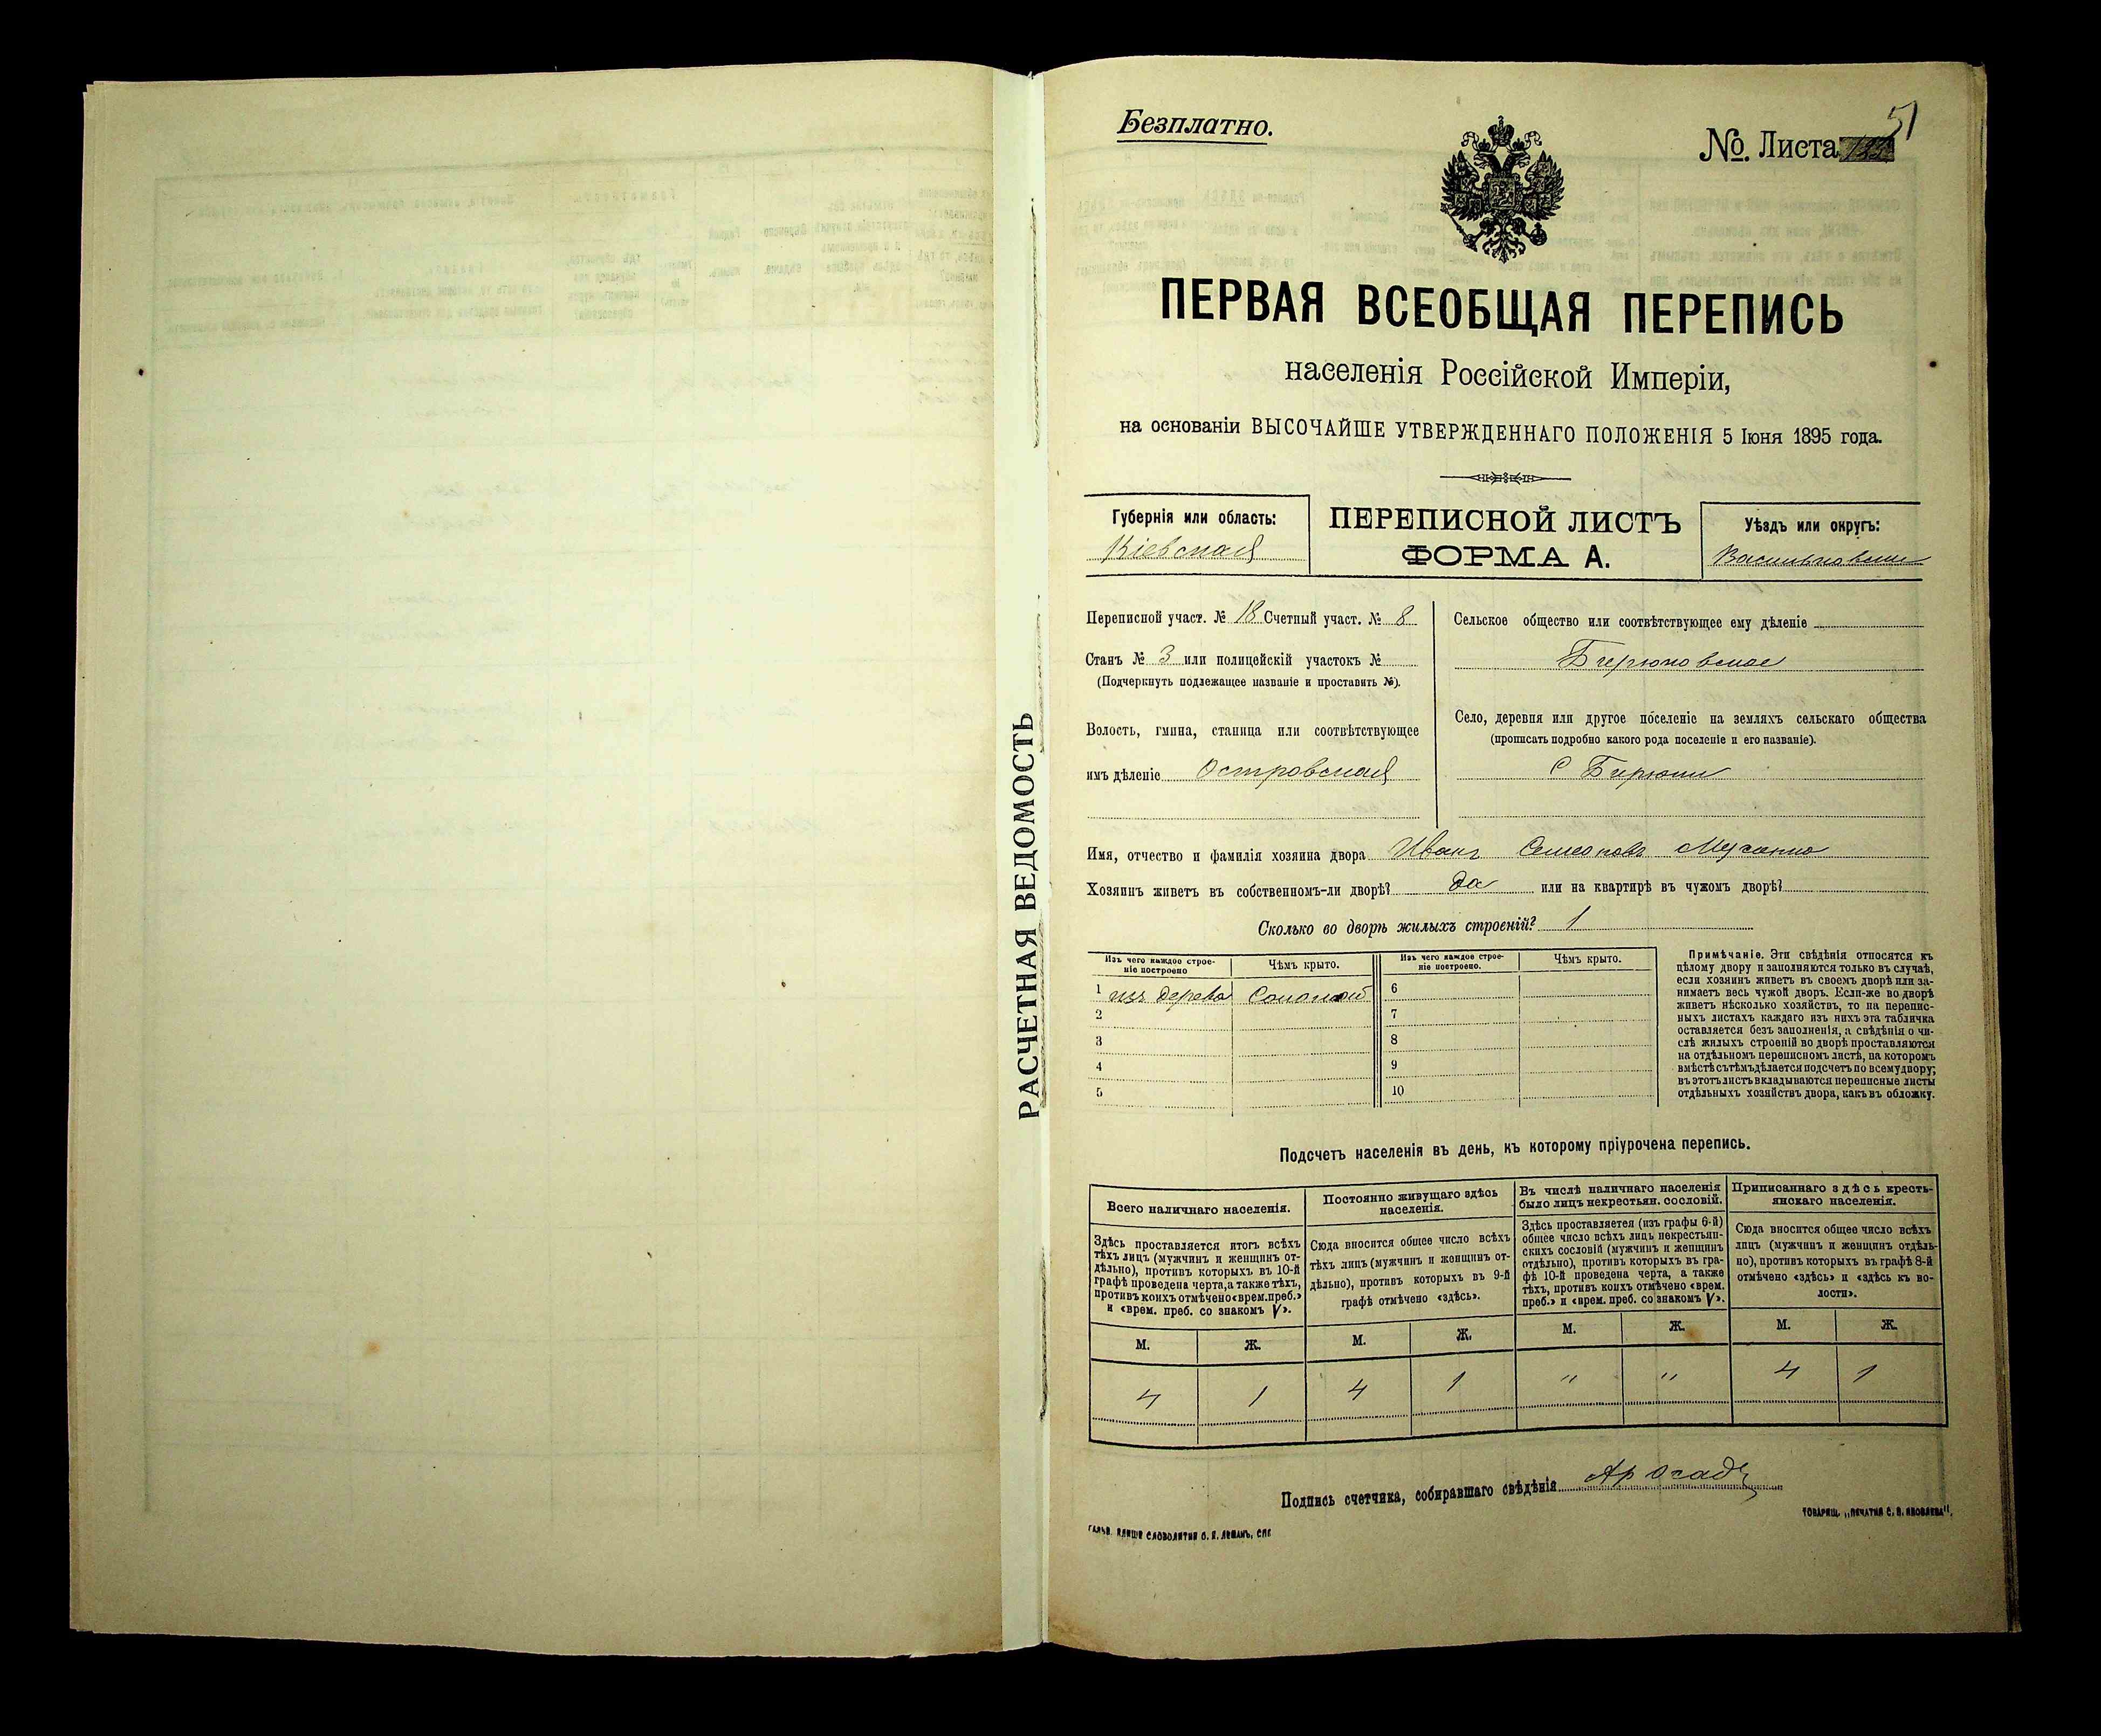 РАСЧЕТНАЯ ВЕДОМОСТЬ
Безплатно.
51
№. Листа
ПЕРВАЯ ВСЕОБЩАЯ ПЕРЕПИСЬ
населенія Россійской Имперіи,
на основаніи ВЫСОЧАЙШЕ УТВЕРЖДЕННАГО ПОЛОЖЕНІЯ 5 Іюня 1895 года.
Губернія или область:
Кіевская
ПЕРЕПИСНОЙ ЛИСТЪ
ФОРМА А.
Уѣздъ или округъ:
Васильковскій
Переписной участ. № 18 Счетный участ. № 8
Станъ № 3 или полицейскій участокъ №
(Подчеркнуть подлежащее названіе и проставить №).
Волость, гмина, станица или соотвѣтствующее
имъ дѣленіе Островская
Сельское общество или соотвѣтствующее ему дѣленіе
Бирюковское
Село, деревня или другое поселеніе на земляхъ сельскаго общества
(прописать подробно какого рода поселеніе и его названіе).
С Бирюки
Имя, отчество и фамилія хозяина двора Иванъ Семеоновъ
Хозяинъ живетъ въ собственномъ-ли дворѣ? да или на квартирѣ въ чужомъ дворѣ?
Сколько во дворѣ жилыхъ строеній? 1
Изъ чего каждое строе-
ніе построено
Чѣмъ крыто.
1 изъ дерева Соломой
2
3
4
5
Изъ чего каждое строе-
ніе построено.
Чѣмъ крыто.
6
7
8
9
10
Примѣчаніе. Эти свѣдѣнія относятся къ
цѣлому двору и заполняются только въ случаѣ,
если хозяинъ живетъ въ своемъ дворѣ или за-
нимаетъ весь чужой дворъ. Если-же во дворѣ
живетъ нѣсколько хозяйствъ, то на перепис-
ныхъ листахъ каждаго изъ нихъ эта табличка
оставляется безъ заполненія, а свѣдѣнія о чи-
слѣ жилыхъ строеній во дворѣ проставляются
на отдѣльномъ переписномъ листѣ, на которомъ
вмѣстѣ съ тѣмъ дѣлается подсчетъ по всему двору;
въ этотъ листъ вкладываются переписные листы
отдѣльныхъ хозяйствъ двора, какъ въ обложку.
Подсчетъ населенія въ день, къ которому пріурочена перепись.
Всего наличнаго населенія.
Здѣсь проставляется итогъ всѣхъ
тѣхъ лицъ (мужчинъ и женщинъ от-
дѣльно), противъ которыхъ въ 10-й
графѣ проведена черта, а также тѣхъ,
противъ коихъ отмѣчено «врем. преб.»
и «врем. преб. со знакомъ V».
М. Ж.
4 1
Постоянно живущаго здѣсь
населенія.
Сюда вносится общее число всѣхъ
тѣхъ лицъ (мужчинъ и женщинъ от-
дѣльно), противъ которыхъ въ 9-й
графѣ отмѣчено «здѣсь».
М. Ж.
4 1
Въ числѣ наличнаго населенія
было лицъ некрестьян. сословій.
Здѣсь проставляется (изъ графы 6-й)
общее число всѣхъ лицъ некрестьян-
скихъ сословій (мужчинъ и женщинъ
отдѣльно), противъ которыхъ въ гра-
фѣ 10-й проведена черта, а также
тѣхъ, противъ коихъ отмѣчено «врем.
преб.» и «врем. преб. со знакомъ V».
М. Ж.
" "
Приписаннаго здѣсь кресть-
янскаго населенія.
Сюда вносится общее число всѣхъ
лицъ (мужчинъ и женщинъ отдѣль-
но), противъ которыхъ въ графѣ 8-й
отмѣчено «здѣсь» и «здѣсь къ во-
лости».
М. Ж.
4 1
Подпись счетчика, собиравшаго свѣдѣнія
ТОВАРИЩ. „ПЕЧАТНЯ С. П. ЯКОВЛЕВА".
ГАЛЬВ. КЛИШЕ СЛОВОЛИТНИ О. И. ЛЕМАНЪ, СПБ